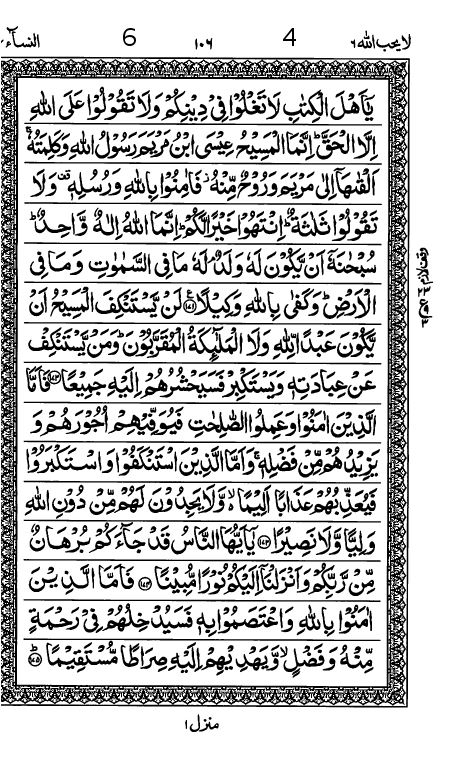 لا یحب الله ٦ 4 ١٠٦ 6 النسآء
يٰۤاَهْلَ الْكِتٰبِ لَا تَغْلُوْا فِيْ دِيْنِكُمْ وَلَا تَقُوْلُوْا عَلَى اللّٰهِ
اِلَّا الْحَقَّ ؕ اِنَّمَا الْمَسِيْحُ عِيْسَى ابْنُ مَرْيَمَ رَسُوْلُ اللّٰهِ وَكَلِمَتُهٗ ۚ
اَلْقٰىهَاۤ اِلٰى مَرْيَمَ وَرُوْحٌ مِّنْهُ ؗ فَاٰمِنُوْا بِاللّٰهِ وَرُسُلِهٖ ۫ۚ وَلَا
تَقُوْلُوْا ثَلٰثَةٌ ؕ اِنْتَهُوْا خَيْرًا لَّكُمْ ؕ اِنَّمَا اللّٰهُ اِلٰهٌ وَّاحِدٌ ؕ
سُبْحٰنَهٗۤ اَنْ يَّكُوْنَ لَهٗ وَلَدٌ ۘ لَهٗ مَا فِي السَّمٰوٰتِ وَمَا فِي
الْاَرْضِ ؕ وَكَفٰى بِاللّٰهِ وَكِيْلًا ﴿١٧١﴾ لَنْ يَّسْتَنْكِفَ الْمَسِيْحُ اَنْ
يَّكُوْنَ عَبْدًا لِّلّٰهِ وَلَا الْمَلٰٓئِكَةُ الْمُقَرَّبُوْنَ ؕ وَمَنْ يَّسْتَنْكِفْ
عَنْ عِبَادَتِهٖ وَيَسْتَكْبِرْ فَسَيَحْشُرُهُمْ اِلَيْهِ جَمِيْعًا ﴿١٧٢﴾ فَاَمَّا
الَّذِيْنَ اٰمَنُوْا وَعَمِلُوا الصّٰلِحٰتِ فَيُوَفِّيْهِمْ اُجُوْرَهُمْ وَ
يَزِيْدُهُمْ مِّنْ فَضْلِهٖ ۚ وَاَمَّا الَّذِيْنَ اسْتَنْكَفُوْا وَاسْتَكْبَرُوْا
فَيُعَذِّبُهُمْ عَذَابًا اَلِيْمًا ۙ وَّلَا يَجِدُوْنَ لَهُمْ مِّنْ دُوْنِ اللّٰهِ
وَلِيًّا وَّلَا نَصِيْرًا ﴿١٧٣﴾ يٰۤاَيُّهَا النَّاسُ قَدْ جَآءَكُمْ بُرْهَانٌ
مِّنْ رَّبِّكُمْ وَاَنْزَلْنَاۤ اِلَيْكُمْ نُوْرًا مُّبِيْنًا ﴿١٧٤﴾ فَاَمَّا الَّذِيْنَ
اٰمَنُوْا بِاللّٰهِ وَاعْتَصَمُوْا بِهٖ فَسَيُدْخِلُهُمْ فِيْ رَحْمَةٍ
مِّنْهُ وَفَضْلٍ ۙ وَّيَهْدِيْهِمْ اِلَيْهِ صِرَاطًا مُّسْتَقِيْمًا ﴿١٧٥﴾ؕ
وقف لازم
منزل ١